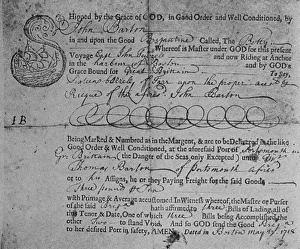 Hipped by the Grace of GOD, in Good Order and Well Conditioned, by
John Barton
In and upon the Good Brigantine Called, The Betty
Whereof is Master under GOD for this present
Voyage Capt John
and now Riding at Anchor
in the harbour of Boston and by GOD's
Grace Bound for Great Brittain To Say,
upon the proper
Resque of the afores^d John Barton
I B
Being Marked & Numbred as in the Margent, & are to be Delivered in the like
Good Order & Well Conditioned, at the aforesaid Port of Portsmouth in
Gr: Brittain (the Dangers of the Seas only Excepted) unto
Thomas Barton of Portsmouth afores^d
or to his Assigns, he or they Paying Freight for the said Goods
Three pound Ten
with Primage & Average accustomed In Witness whereof, the Master or Purser
of the said Brig^n hath affirmed Three Bills of Lading, all of
this Tenor & Date, One of which three Bills being Accomplished the
other Two to stand Void. And so GOD send the Good Brig^n
to her desired Port in safety, AMEN. Dated in Boston May 1718